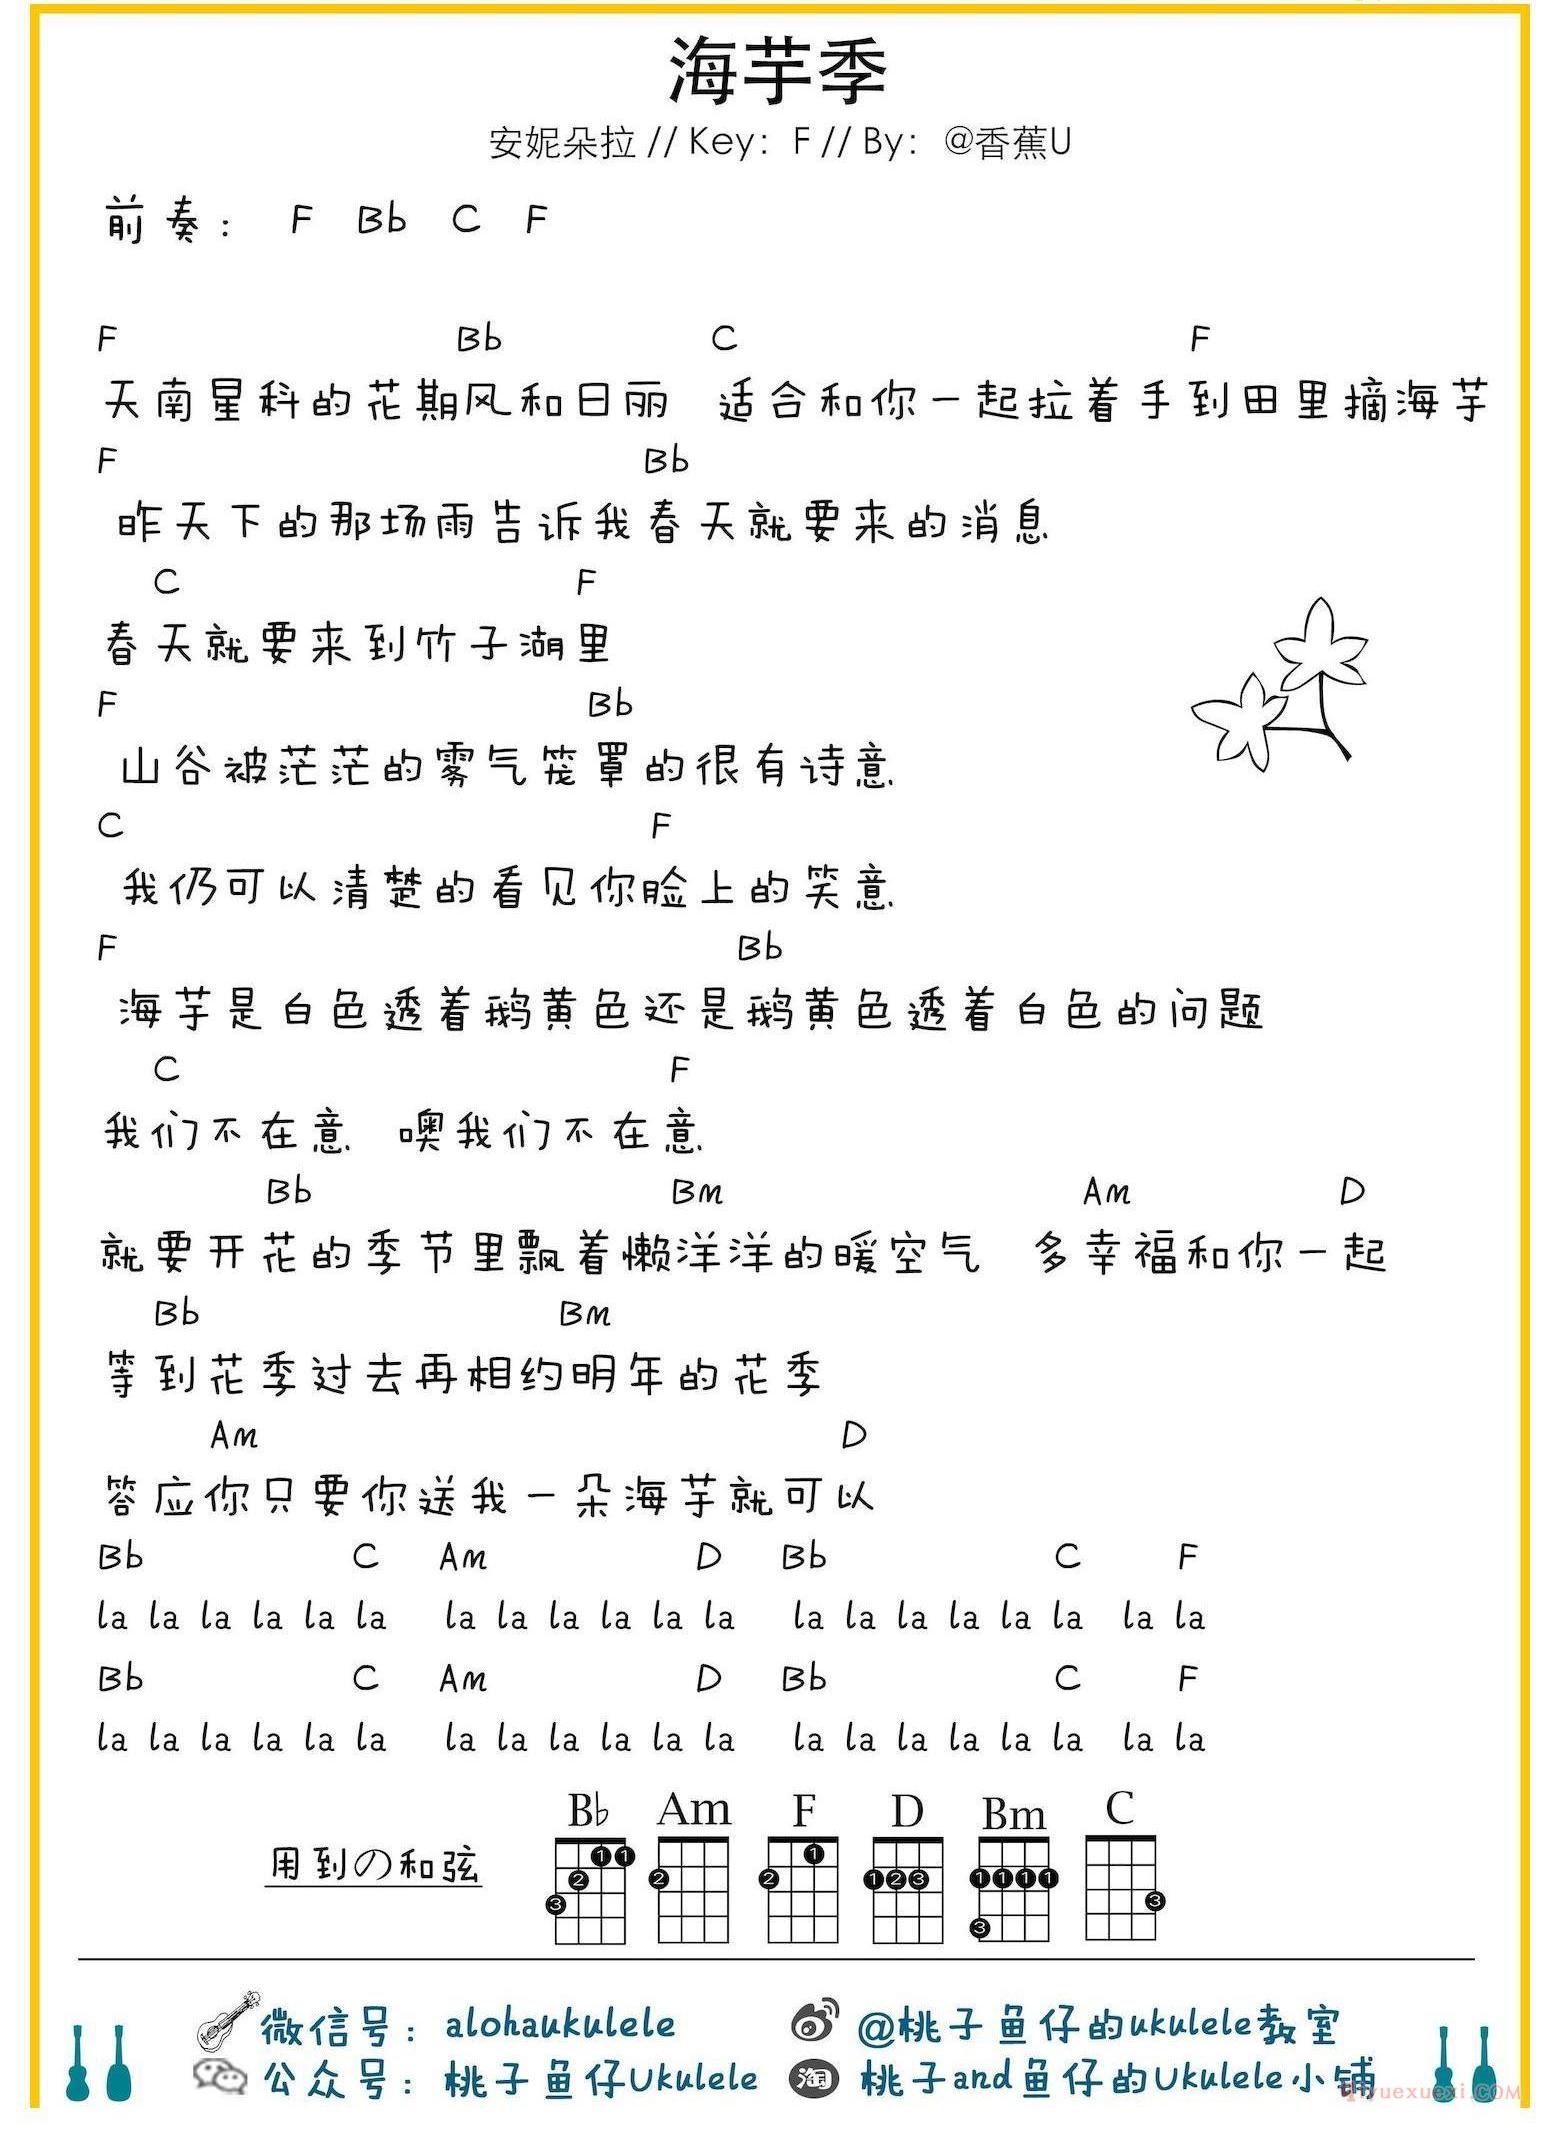 海芋季
安妮朵拉 // Key: F // By: @香蕉U
前奏: F Bb C F
F Bb C F
天南星科的花期风和日丽 适合和你一起拉着手到田里摘海芋
F Bb
昨天下的那场雨告诉我春天就要来的消息
C F
春天就要来到竹子湖里
F Bb
山谷被茫茫的雾气笼罩的很有诗意
C F
我仍可以清楚的看见你脸上的笑意
F Bb
海芋是白色透着鹅黄色还是鹅黄色透着白色的问题
C F
我们不在意 噢我们不在意
Bb Bm Am D
就要开花的季节里飘着懒洋洋的暖空气 多幸福和你一起
Bb Bm
等到花季过去再相约明年的花季
Am D
答应你只要你送我一朵海芋就可以
Bb C Am D Bb C F
la la la la la la la la la la la la la la la la la la la la
Bb C Am D Bb C F
la la la la la la la la la la la la la la la la la la la la
B♭ Am F D Bm C
用到の和弦
1 1 2 3 2 2 1 1 2 3 1 1 1 1 3 3
微信号: alohaukulele @桃子鱼仔的ukulele教室
公众号: 桃子鱼仔Ukulele 淘 桃子and鱼仔的Ukulele小铺